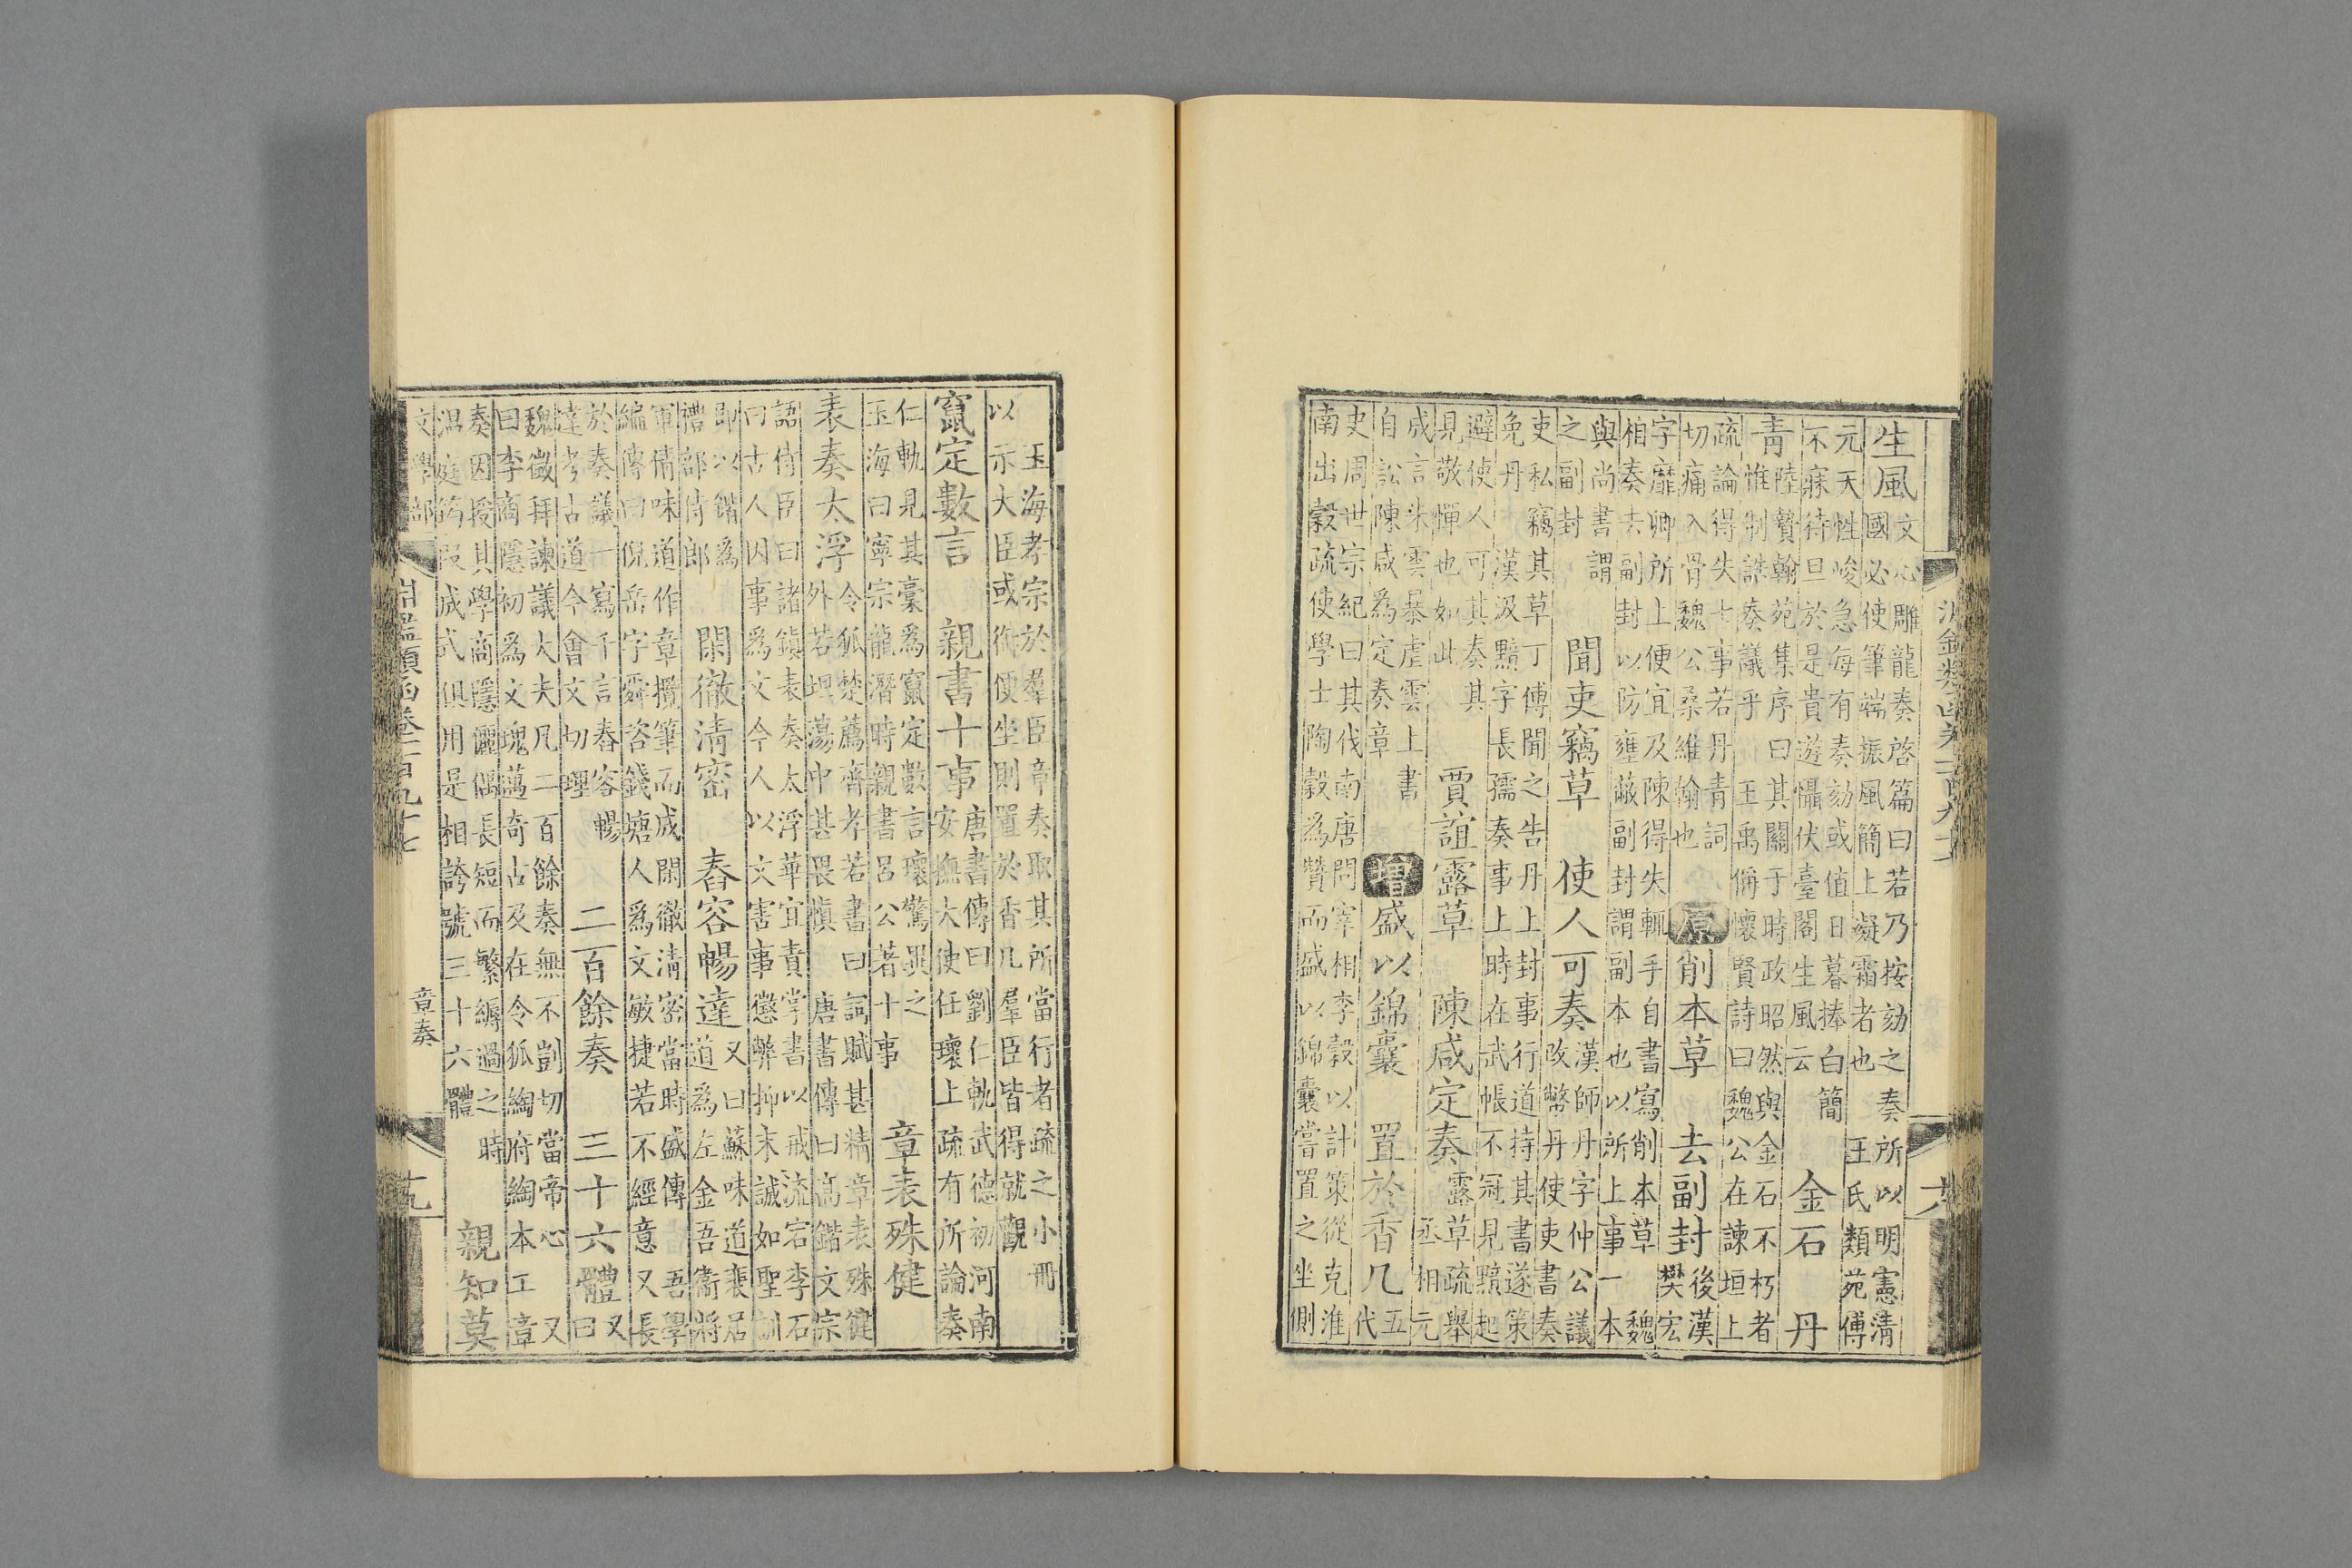 生風
文心雕龍奏啓篇曰若乃按劾之奏所以明憲清
國必使筆端振風簡上凝霜者也 王氏類苑傅
元天性峻急每有奏劾或值日暮捧白簡
不寐待旦於是貴遊懾伏臺閣生風云
金石 丹
青
陸贄翰苑集序曰其關于時政昭然與金石不朽者
惟制誥奏議乎 王禹偁懷賢詩曰魏公在諫垣上
疏論得失七事若丹青詞
切痛入骨魏公桑維翰也
原 削本草 去副封
後漢
樊宏
字靡卿所上便宜及陳得失輒手自書寫削本草 魏
相奏去副封以防壅蔽副封謂副本也以所上事一本
與尚書謂
之副封
聞吏竊草 使人可奏
漢師丹字仲公議
改幣丹使吏書奏
吏私竊其草丁傅聞之告丹上封事行道持其書遂策
免丹 漢汲黯字長孺奏事上時在武帳不冠見黯起
避使人可其奏其
見敬憚也如此
賈誼露草 陳咸定奏
露草疏舉
丞相元
成言朱雲暴虐雲上書
自訟陳咸為定奏章
增 盛以錦囊 置於香几
五
代
史周世宗紀曰其伐南唐問宰相李穀以計策從克淮
南出穀疏使學士陶穀為贊而盛以錦囊嘗置之坐側
玉海孝宗於羣臣章奏取其所當行者疏之小冊
以示大臣或御便坐則置於香几羣臣皆得就觀
竄定數言 親書十事
唐書傳曰劉仁軌武德初河南
安撫大使任瓌上疏有所論奏
仁軌見其稾為竄定數言瓌驚異之
玉海曰寧宗龍潛時親書呂公著十事
章表殊健
表奏太浮
令狐楚薦齊孝若書曰詞賦甚精章表殊健
外若坦蕩中甚畏慎 唐書傳曰高鍇文宗
語侍臣曰諸鎮表奏太浮華宜責掌書以戒流宕李石
曰古人因事為文今人以文害事懲弊抑末誠如聖訓
即以鍇為
禮部侍郎
閑徹清密 舂容暢達
又曰蘇味道裴居
道為左金吾衛將
軍倩味道作章攬筆而成閑徹清密當時盛傳 吾學
編傳曰倪岳字舜咨錢塘人為文敏捷若不經意又長
於奏議一寫千言舂容暢
達考古道今會文切理
二百餘奏 三十六體
又
曰
魏徵拜諫議大夫凡二百餘奏無不剴切當帝心 又
曰李商隱初為文瑰邁奇古及在令狐綯府綯本工章
奏因授其學商隱儷偶長短而繁縟過之時
溫庭筠段成式俱用是相誇號三十六體
親知莫
文學部
章奏